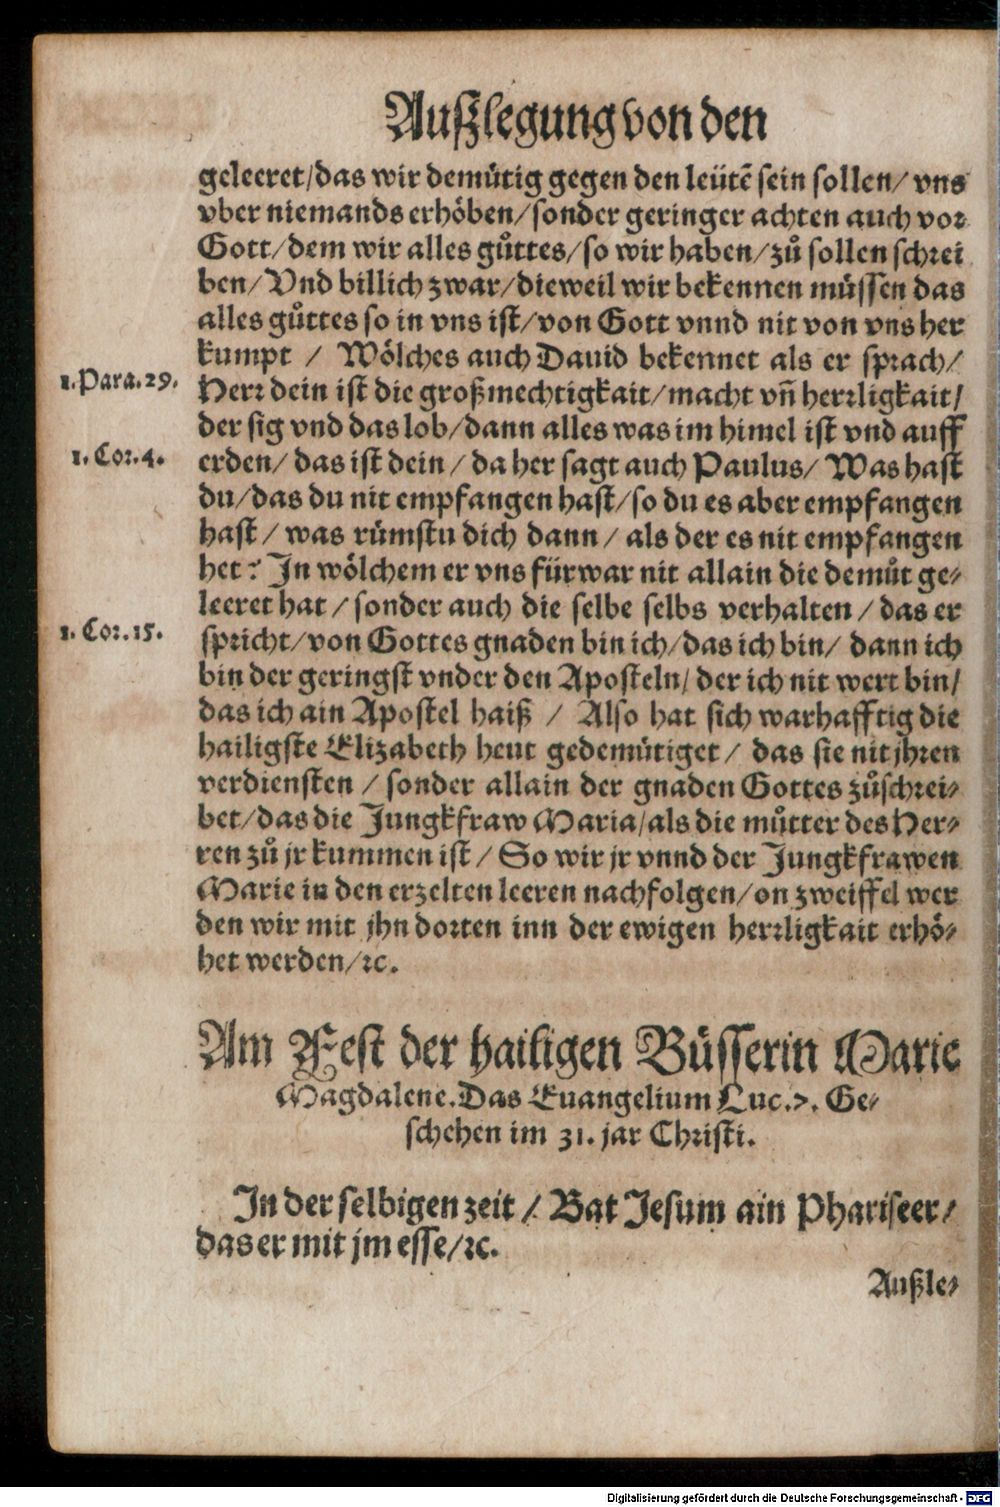 Außlegung von den
geleeret/das wir demuͤtig gegen den leütē sein sollen/ vns
vber niemands erhoͤben/sonder geringer achten auch vor
Gott/dem wir alles guͦttes/so wir haben/zuͦ sollen schrei
ben/Vnd billich zwar/dieweil wir bekennen muͤssen das
alles guͦttes so in vns ist/von Gott vnnd nit von vns her
kumpt / Woͤlches auch Dauid bekennet als er sprach/
1. Para. 29.
Herr dein ist die großmechtigkait/macht vñ herrligkait/
der sig vnd das lob/dann alles was im himel ist vnd auff
1. Cor. 4.
erden/ das ist dein / da her sagt auch Paulus/ Was hast
du/das du nit empfangen hast/so du es aber empfangen
hast / was ruͤmstu dich dann / als der es nit empfangen
het? In woͤlchem er vns fürwar nit allain die demuͤt ge-
leeret hat / sonder auch die selbe selbs verhalten / das er
1. Cor. 15.
spricht/von Gottes gnaden bin ich/das ich bin/ dann ich
bin der geringst vnder den Aposteln/ der ich nit wert bin/
das ich ain Apostel haiß / Also hat sich warhafftig die
hailigste Elizabeth heut gedemuͤtiget / das sie nit jhren
verdiensten / sonder allain der gnaden Gottes zuͦschrei-
bet/das die Jungkfraw Maria/als die muͦtter des Her-
ren zuͦ jr kummen ist / So wir jr vnnd der Jungkfrawen
Marie in den erzelten leeren nachfolgen/on zweiffel wer
den wir mit jhn dorten inn der ewigen herrligkait erhoͤ-
het werden/ꝛc.
Am Fest der hailigen Buͤsserin Marie
Magdalene. Das Euangelium Luc. 7. Ge-
schehen im 31. jar Christi.
In der selbigen zeit / Bat Jesum ain Phariseer/
das er mit jm esse/ꝛc.
Außle-
Digitalisierung gefördert durch die Deutsche Forschungsgemeinschaft - DFG